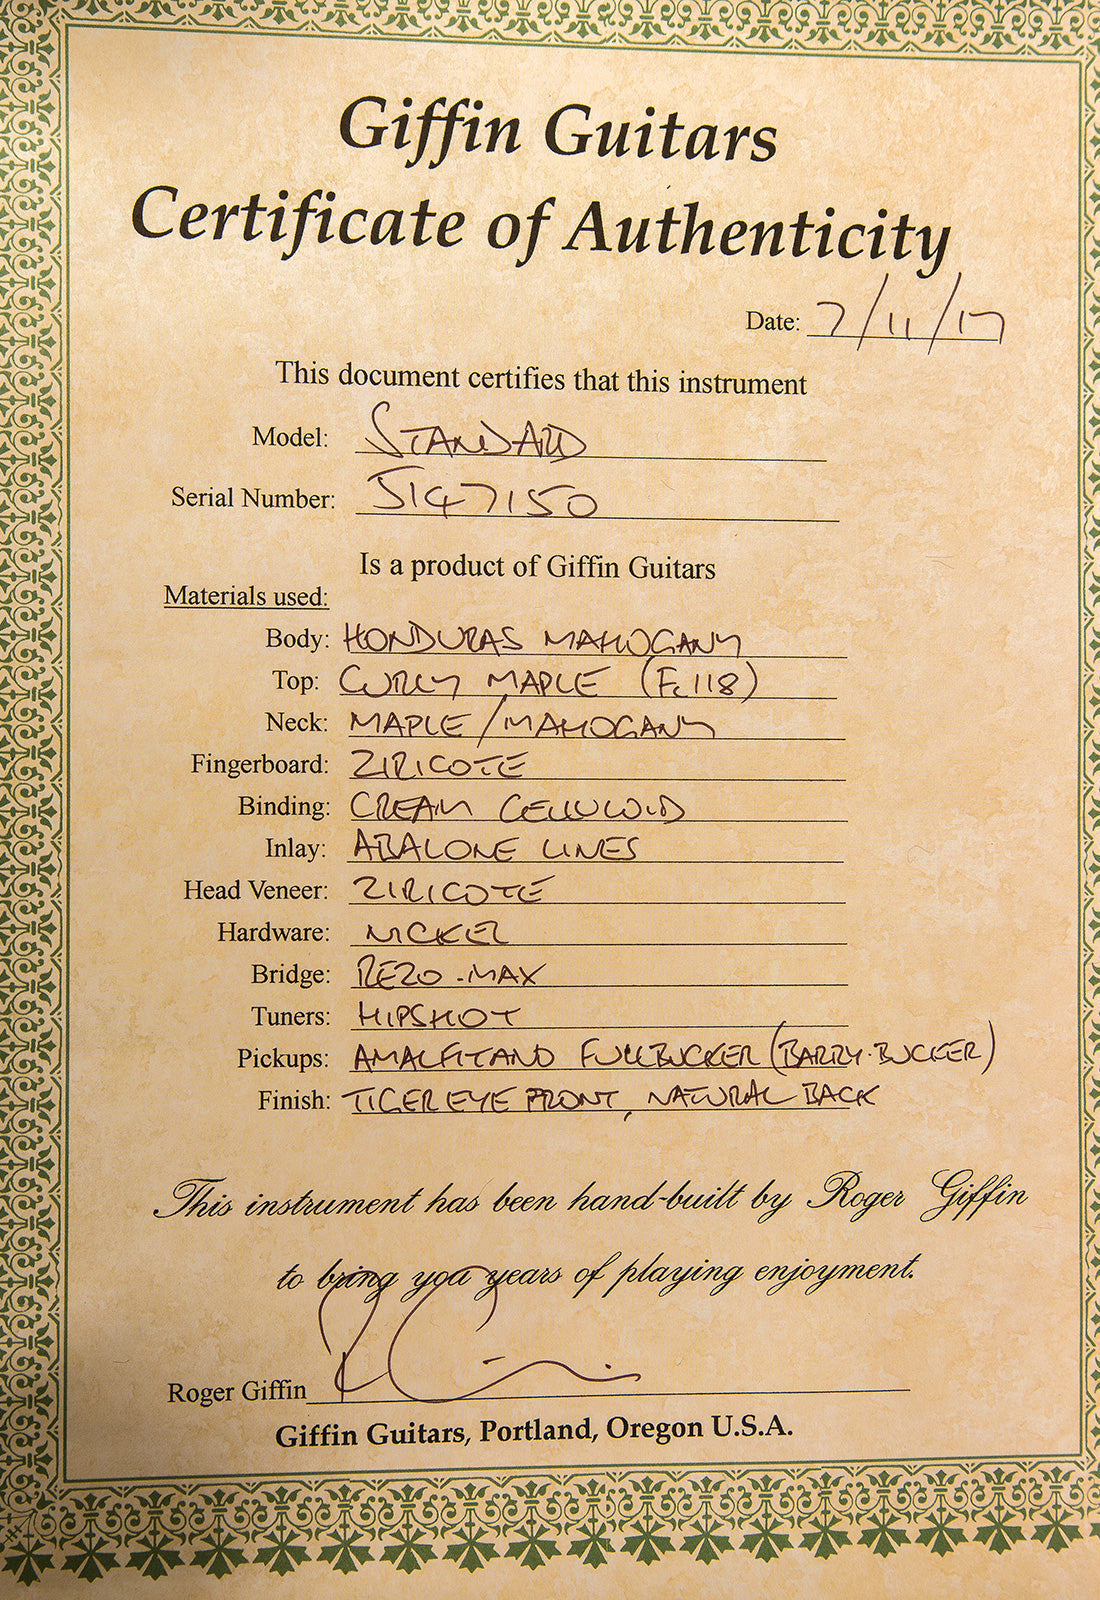 Giffin Guitars
Certificate of Authenticity
Date: 7/11/17
This document certifies that this instrument
Model: STANDARD
Serial Number: 5147150
Is a product of Giffin Guitars
Materials used:
Body: HONDURAS MAHOGANY
Top: CURLY MAPLE (F.118)
Neck: MAPLE/MAHOGANY
Fingerboard: ZIRICOTE
Binding: CREAM CELLULOID
Inlay: ABALONE LINES
Head Veneer: ZIRICOTE
Hardware: NICKEL
Bridge: REZO-MAX
Tuners: HIPSHOT
Pickups: AMALFITANO FULLBUCKER (BARRY-BUCKER)
Finish: TIGER EYE FRONT, NATURAL BACK
This instrument has been hand-built by Roger Giffin
to bring you years of playing enjoyment.
Roger Giffin
Giffin Guitars, Portland, Oregon U.S.A.